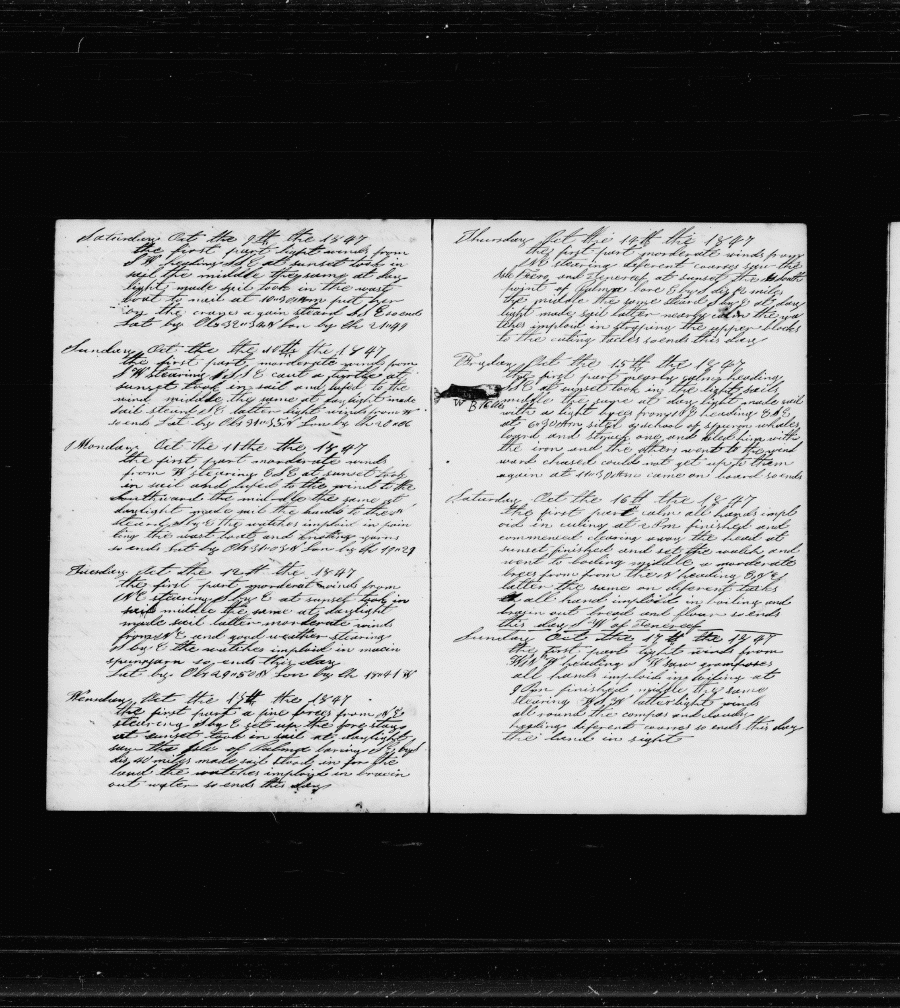 Saturday Oct the 9th the 1847
the first part light winds from
S W heading S E at sunset took in
sail the middle the same at day
light made sail took in the wast
boat to nail at 10-30 Am put her
on the cranes again steard S E so ends
Lat by Obs 32=34 N Lon by Ch 21=49
Sunday Oct the the 10th the 1847
the first part morderate winds from
S W stearing S E caut a turtle at
sunset took in sail and lufed to the
wind middle the same at daylight made
sail steard S E latter light winds from W
so ends Lat by Obs 31=35 N Lon by Ch 20=06
Monday Oct the 11the the 1847
the first part morderate winds
from W stearing E S E at sunset took
in sail and lufed to the wind to the
southward the middle the same at
daylight made sail the hands to the N
steard S by E the watches imploid in pain
ting the wast boat and knoting yarns
so ends Lat by Obs 31=03 N Lon by Ch 19=29
Tuesday Oct the 12th the 1847
the first part morderat winds from
N E stearing S by E at sunset took in
sail middle the same at daylight
made sail latter morderate winds
from N E and good weather stearing
S by E the watches imploid in makin
spunyarn so ends this day
Lat by Obs 29=50 N Lon by Ch 18=41 W
Wensday Oct the 13th the 1847
the first part a fine brees from N E
stearing S by E set up the fore stays
at sunset took in sail at daylight
saw the Isle of Palma baring S E by S
dis 40 miles made sail stood in for the
land the watches imployd in breakin
out water so ends this day
Thursday Oct the 14th the 1847
the first part morderate winds from
N E stearing different courses saw the
and Teneref at sunset the South
point of Palma bore E by S dis 12 miles
the middle the same steard S by E at day
light made sail latter nearly calm the wa
tches imploid in stroping the upper blocks
to the cuting tacles so ends this day
Fryday Oct the 15th the 1847
the first part nearly calm heading
S E at sunset took in the light sails
middle the same at day light made sail
with a light brees from N E heading E S E
at 6=30 Am sited a school of sperm whales
loard and struck one and kiled him with
the iron and the others went to the wind
ward chased could not get up to them
again at 10=30 Am came on board so ends
W B 16 bbls
Saturday Oct the 16th the 1847
the first part calm all hands impl
oid in cuting at 2 Pm finished and
commenced clearing away the head at
sunset finished and set the watch and
went to boiling middle a morderate
brees from from the N heading E N E
latter the same on diferent tacks
all hands imploid in boiling and
brakin out bread and flour so ends
this day S W of Teneref
Sunday Oct the 17th the 1847
the first part light winds from
W N W heading S W saw grampases
all hands imploid in boiling at
9 Pm finished middle the same
stearing W S W latter light winds
all round the compas and cloudy
heading diferent courses so ends this day
the land in sight